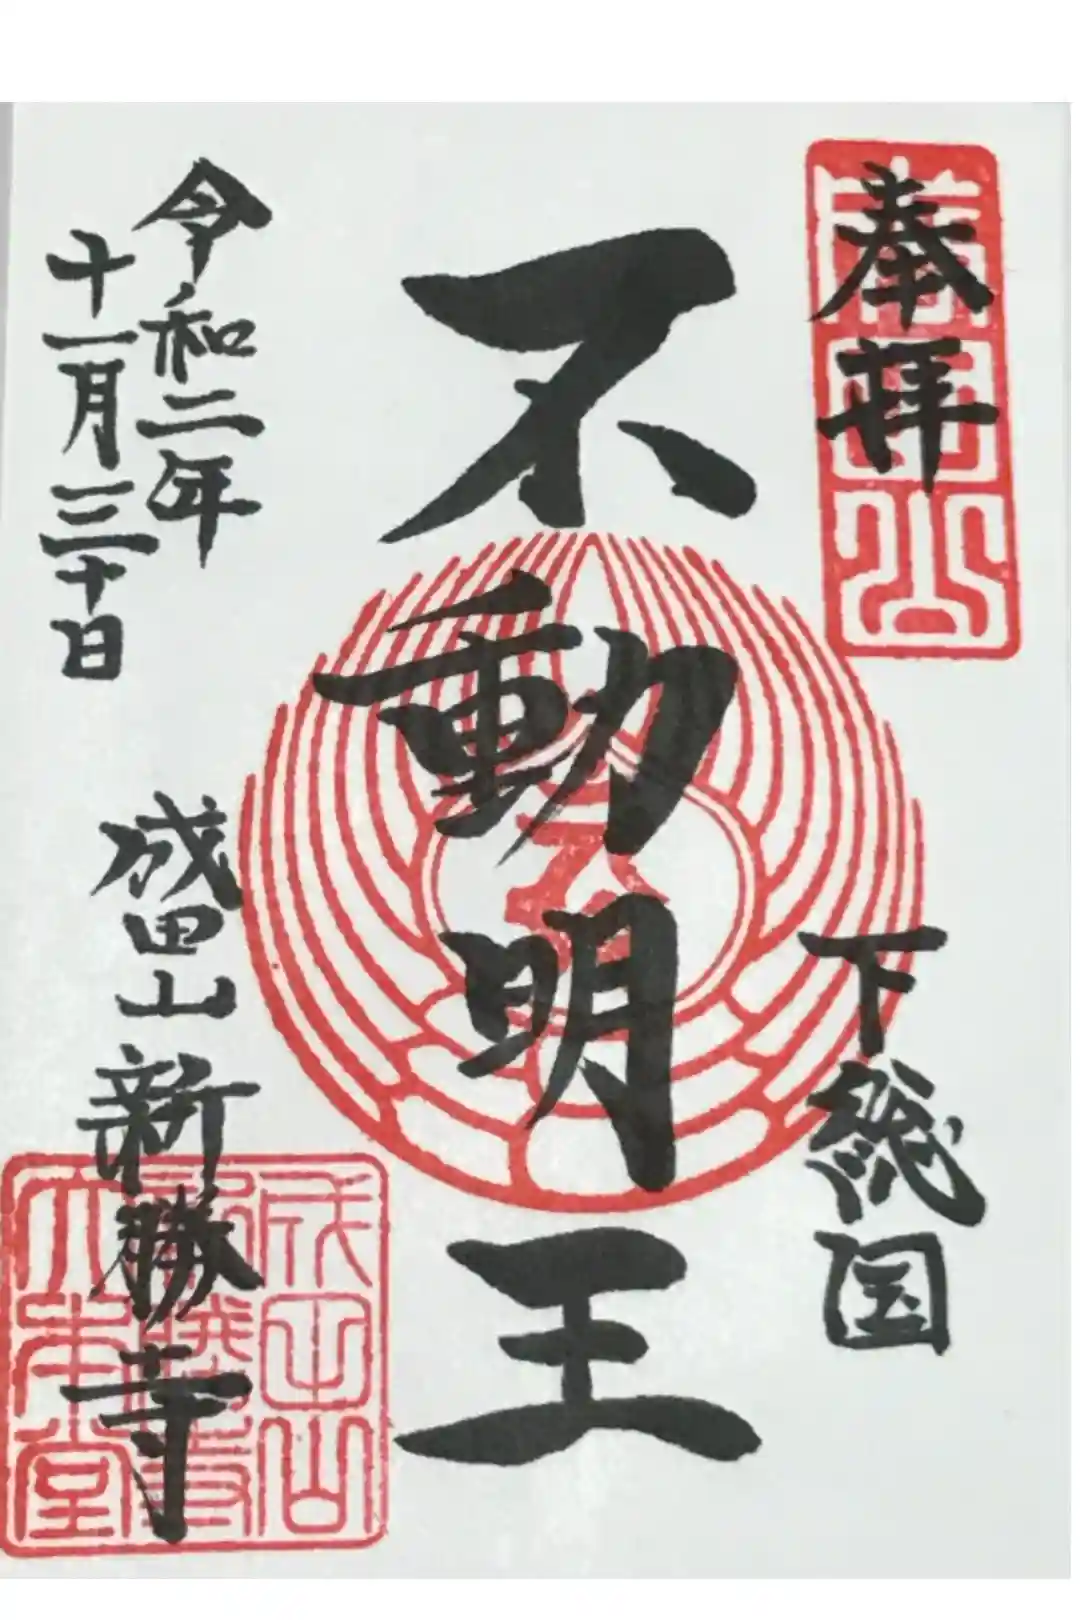 奉拝
下総国
不動明王
令和二年
十一月三十日
成田山新勝寺
成田山
新勝寺
大本堂